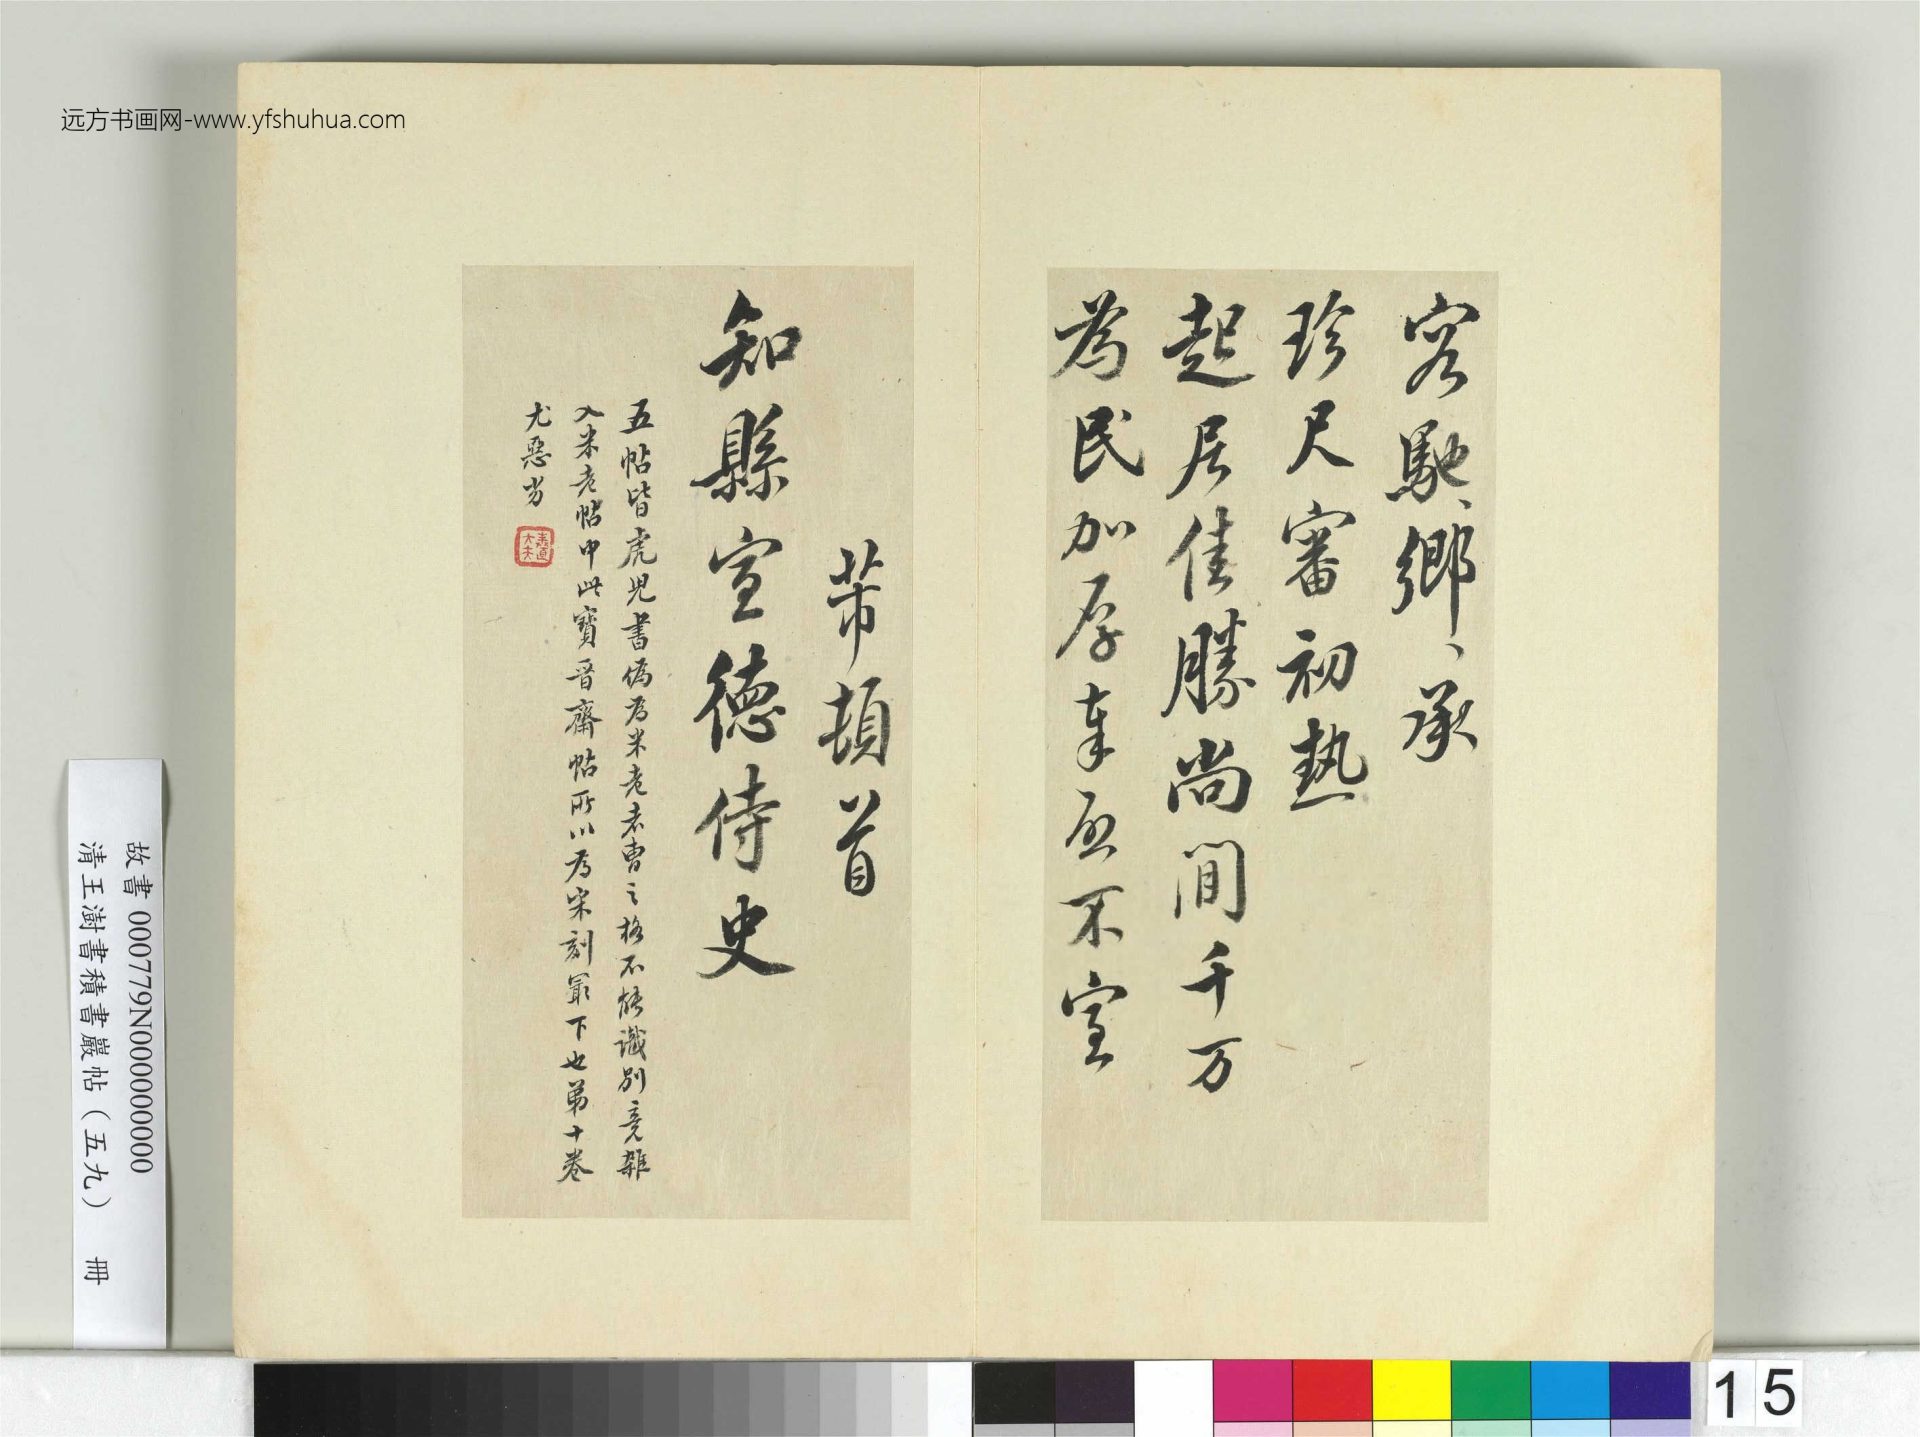 远方书画网-www.yfshuhua.com
容馳、鄉、承
珍尺審初熱
起居佳勝尚間千万
為民加厚奉啟不宣
芾頓首
知縣宣德侍史
五帖皆虎児書偽為米老老曹之格不能識別竟雜
入米老帖中此寶晉齋帖所以為宋刻冣下也第十卷
尤惡劣
故書 000779N000000000
清王澍書積書巖帖（五九） 冊
15